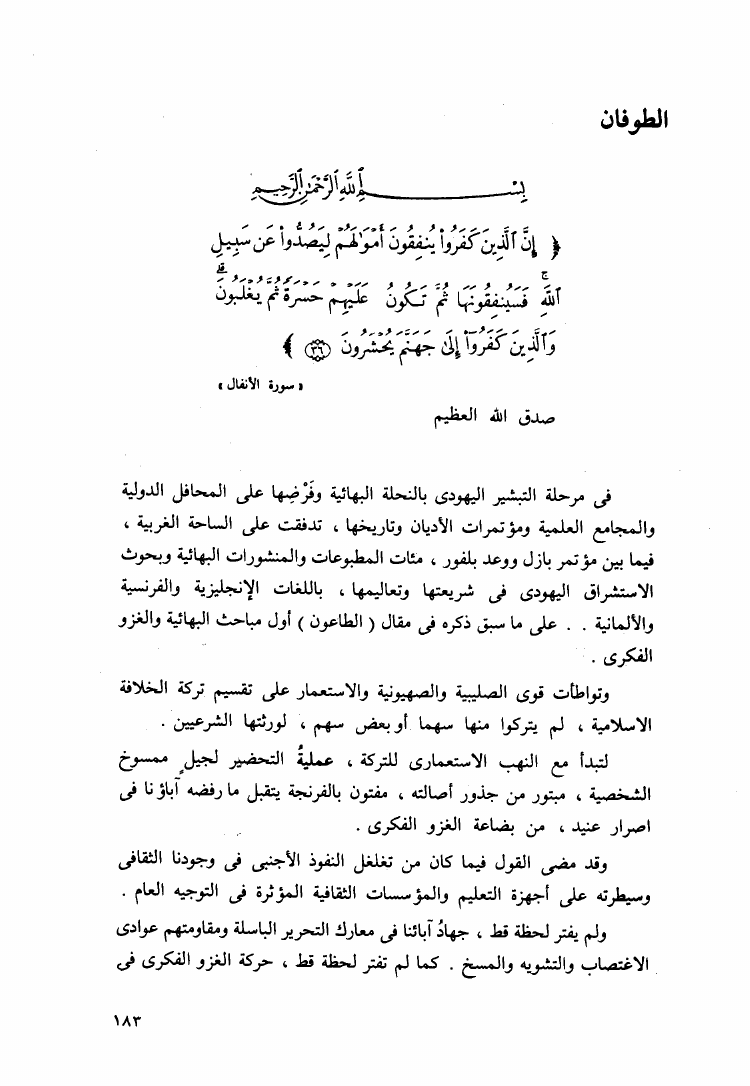 الطوفان
بِسْمِ اللَّهِ الرَّحْمَٰنِ الرَّحِيمِ
﴿ إِنَّ ٱلَّذِينَ كَفَرُوا۟ يُنفِقُونَ أَمْوَٰلَهُمْ لِيَصُدُّوا۟ عَن سَبِيلِ
ٱللَّهِ ۚ فَسَيُنفِقُونَهَا ثُمَّ تَكُونُ عَلَيْهِمْ حَسْرَةً ثُمَّ يُغْلَبُونَ ۗ
وَٱلَّذِينَ كَفَرُوٓا۟ إِلَىٰ جَهَنَّمَ يُحْشَرُونَ ٣٦ ﴾
« سورة الأنفال »
صدق الله العظيم
فى مرحلة التبشير اليهودى بالنحلة البهائية وفَرْضِها على المحافل الدولية
والمجامع العلمية ومؤتمرات الأديان وتاريخها ، تدفقت على الساحة الغربية ،
فيما بين مؤتمر بازل ووعد بلفور ، مئات المطبوعات والمنشورات البهائية وبحوث
الاستشراق اليهودى فى شريعتها وتعاليمها ، باللغات الإنجليزية والفرنسية
والألمانية . . على ما سبق ذكره فى مقال ( الطاعون ) أول مباحث البهائية والغزو
الفكرى .
وتواطأت قوى الصليبية والصهيونية والاستعمار على تقسيم تركة الخلافة
الاسلامية ، لم يتركوا منها سهما أو بعض سهم ، لورثتها الشرعيين .
لتبدأ مع النهب الاستعمارى للتركة ، عمليةُ التحضير لجيلٍ ممسوخ
الشخصية ، مبتور من جذور أصالته ، مفتون بالفرنجة يتقبل ما رفضه آباؤنا فى
اصرار عنيد ، من بضاعة الغزو الفكرى .
وقد مضى القول فيما كان من تغلغل النفوذ الأجنبى فى وجودنا الثقافى
وسيطرته على أجهزة التعليم والمؤسسات الثقافية المؤثرة فى التوجيه العام .
ولم يفتر لحظة قط ، جهادُ آبائنا فى معارك التحرير الباسلة ومقاومتهم عوادى
الاغتصاب والتشويه والمسخ . كما لم تفتر لحظة قط ، حركة الغزو الفكرى فى
١٨٣